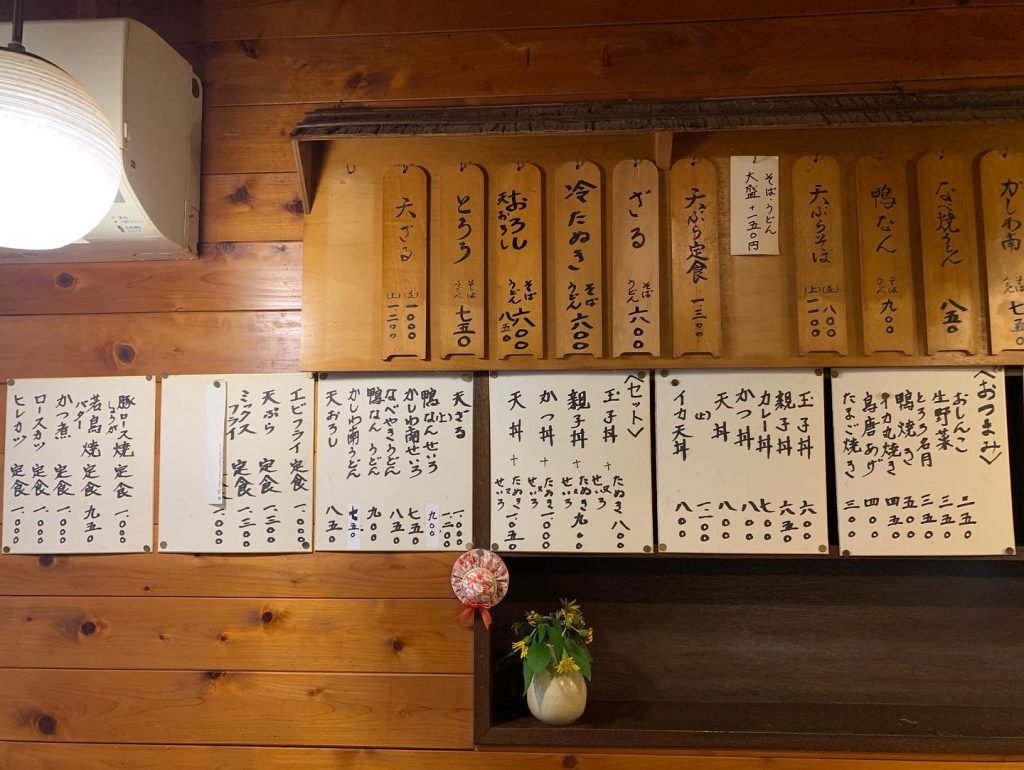 かしわ南
なべ焼うどん 八五〇
鴨なん そば うどん 九〇〇
天ぷらそば (並) 八〇〇 (上)
そば・うどん
大盛 +一五〇円
天ぷら定食 一三〇〇
ざる そば うどん 六〇〇
冷たぬき そば うどん 六〇〇
おろし そば 六〇〇
天おろし うどん 八五〇
とろろ そば うどん 七五〇
天ざる (並) 一〇〇〇 (上) 一二〇〇
〈おつまみ〉
おしんこ 二五〇
生野菜 三五〇
とろろ名月 三五〇
鴨焼き 五〇〇
イカ丸焼き 四五〇
鳥唐あげ 四〇〇
たまご焼き 三〇〇
玉子丼 六〇〇
親子丼 六五〇
カレー丼 七〇〇
かつ丼 八〇〇
天丼 八〇〇
(上) 一、二〇〇
イカ天丼 八〇〇
〈セット〉
玉子丼 + たぬき 又は せいろ 八〇〇
親子丼 + たぬき 又は せいろ 九〇〇
かつ丼 + たぬき 又は せいろ 一、〇〇〇
天丼 + たぬき 又は せいろ 一、〇五〇
天ざる 一、〇〇〇
(上) 一、二〇〇
鴨なんせいろ 九〇〇
かしわ南せいろ 七五〇
なべやきうどん 八五〇
鴨なんうどん 九〇〇
かしわ南うどん 七五〇
天おろし 八五〇
エビフライ 定食 一、〇〇〇
天ぷら 定食 一、三〇〇
ミックスフライ 定食 一、三〇〇
豚ロースしょうが焼 定食 一、〇〇〇
若鳥バター焼 定食 九五〇
かつ煮 定食 一、〇〇〇
ロースカツ 定食 一、〇〇〇
ヒレカツ 定食 一、〇〇〇